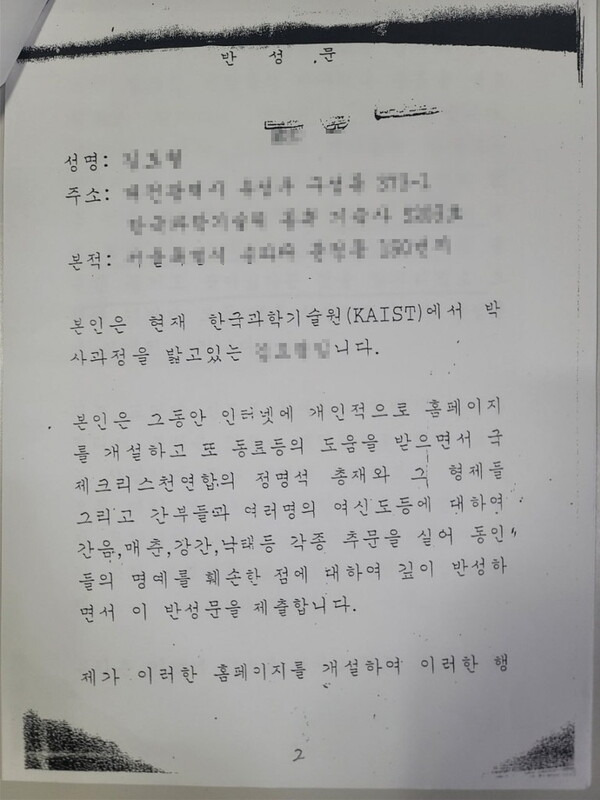 반 성 문
성명:
주소:
본적:
본인은 현재 한국과학기술원(KAIST)에서 박
사과정을 밟고있는 니다.
본인은 그동안 인터넷에 개인적으로 홈페이지
를 개설하고 또 동료등의 도움을 받으면서 국
제크리스천연합의 정명석 총재와 그 형제들
그리고 간부들과 여러명의 여신도등에 대하여
간음,매춘,강간,낙태등 각종 추문을 실어 동인
들의 명예를 훼손한 점에 대하여 깊이 반성하
면서 이 반성문을 제출합니다.
제가 이러한 홈페이지를 개설하여 이러한 행
2